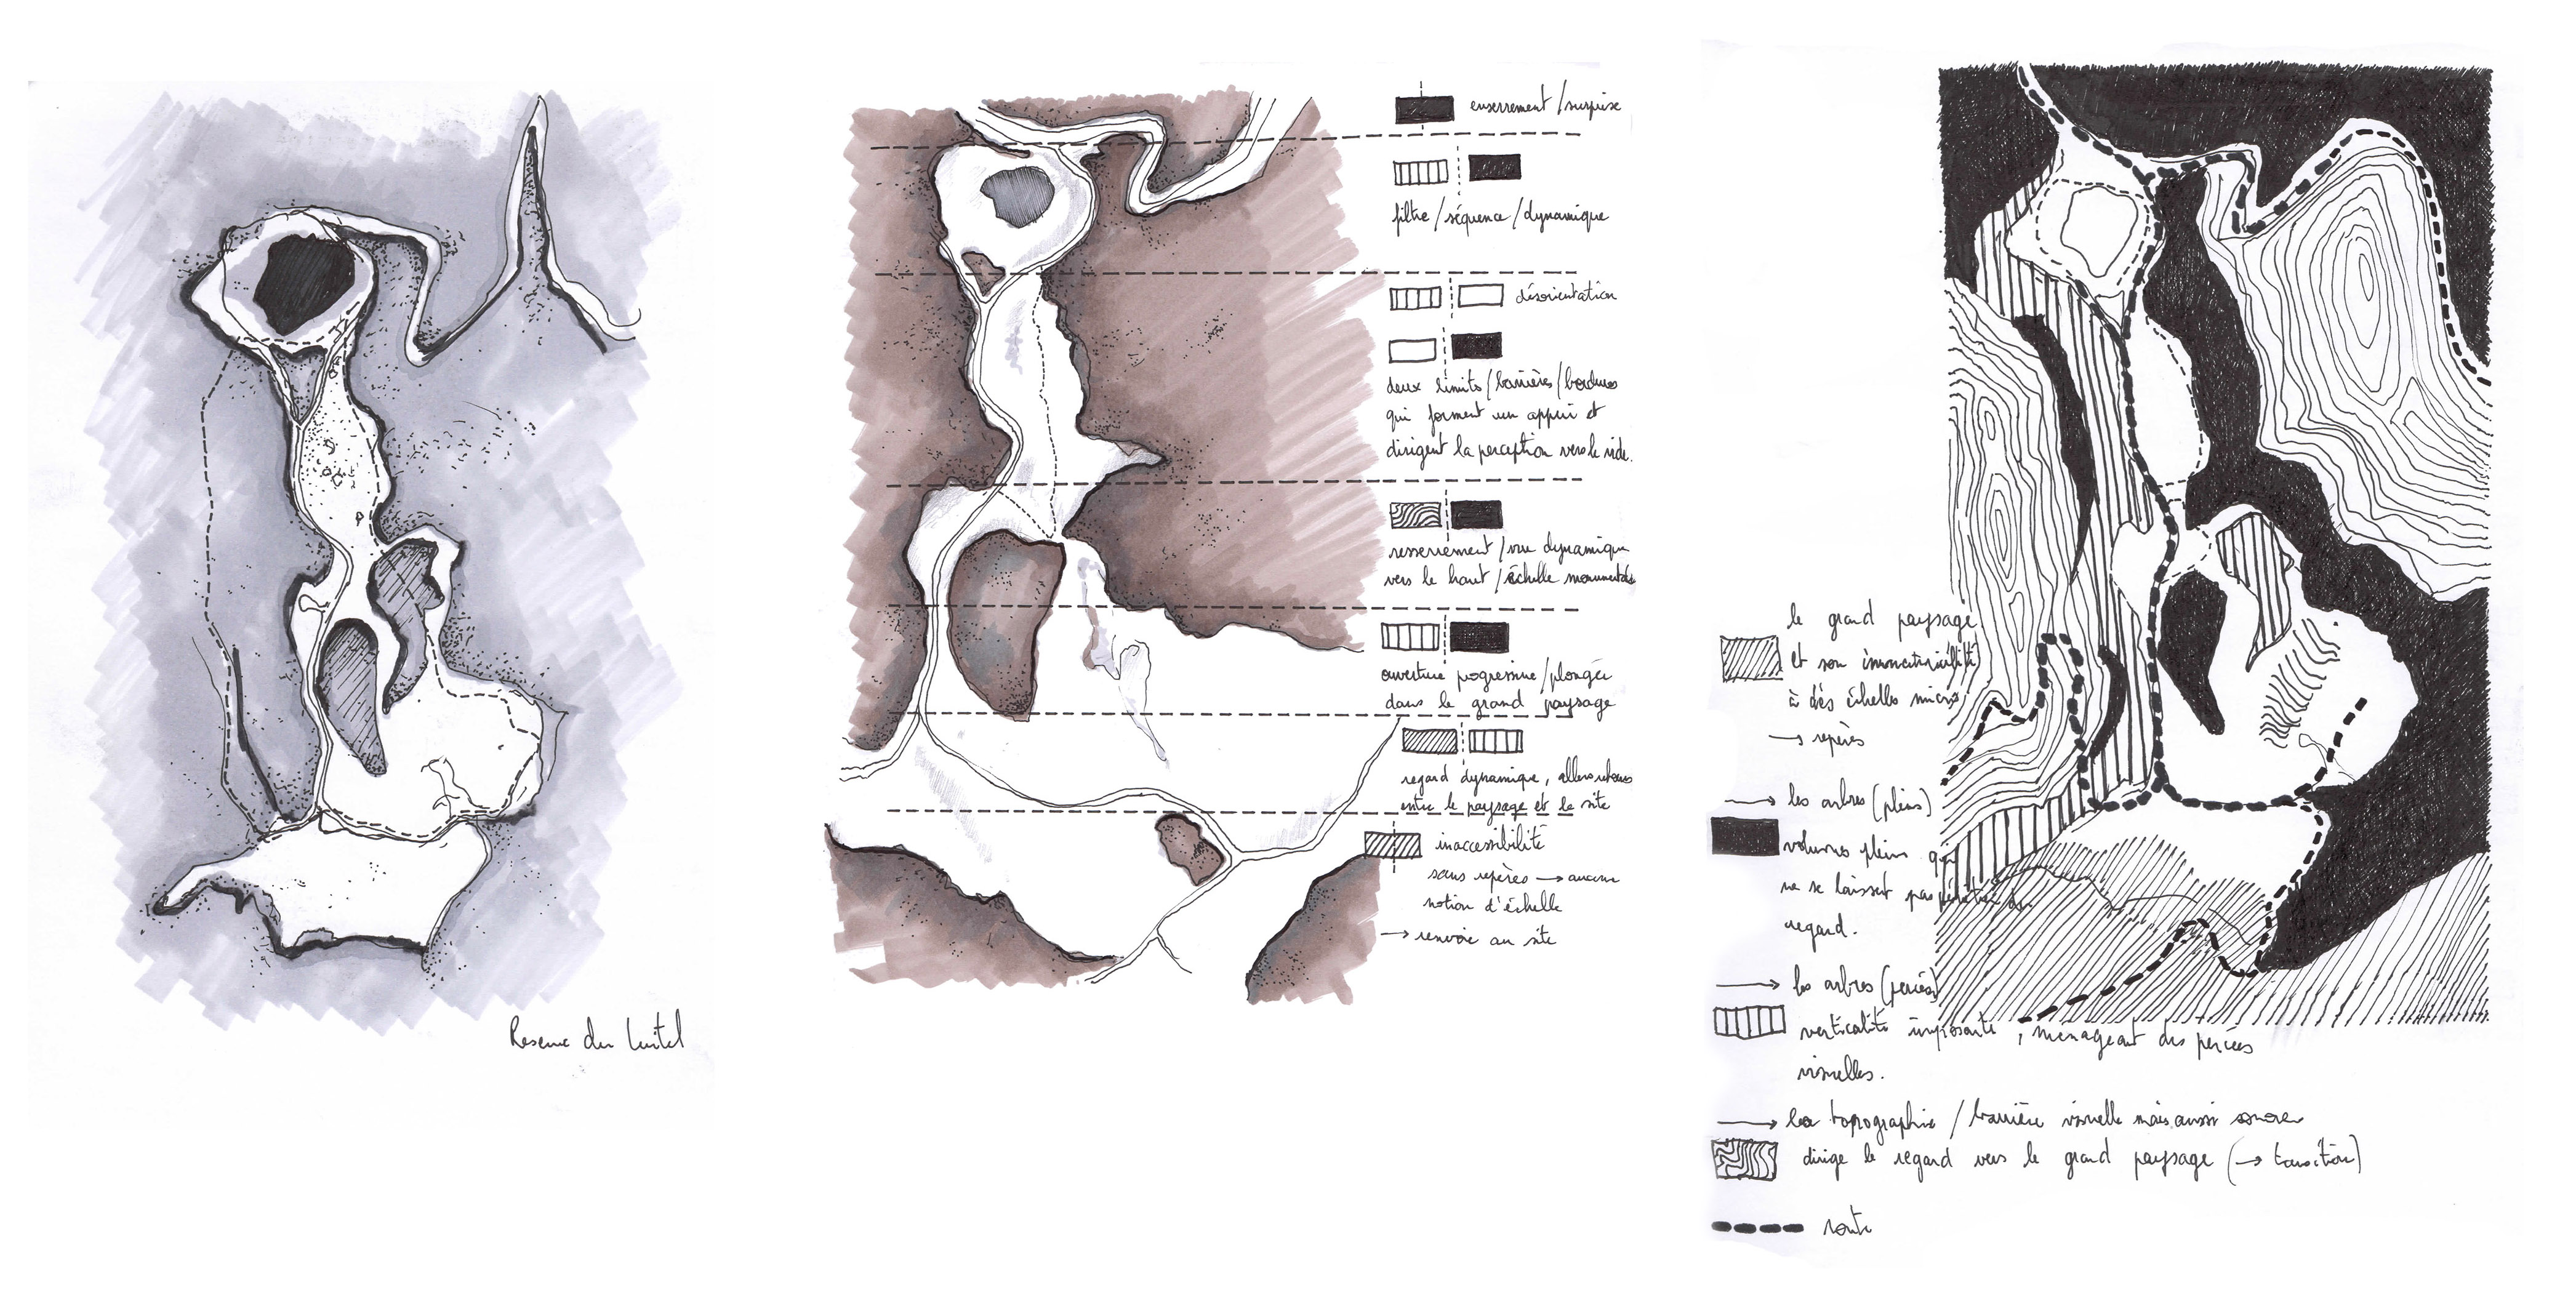 Reserve du Luitel
enserrement / surprise
filtre / séquence / dynamique
désorientation
deux limits / barrières / bordures
qui forment un appui et
dirigent la perception vers le vide.
resserrement / vue dynamique
vers le haut / échelle monumentale
ouverture progressive / plongée
dans le grand paysage
regard dynamique, allers retours
entre le paysage et le site
inaccessibilité
sans repères → aucune
notion d'échelle
→ renvoie au site
le grand paysage
et son
à des échelles micro
→ repères
→ les arbres (pleins)
volumes pleins qui
ne se laissent pas pénétrer du
regard.
→ les arbres (percés)
verticalité imposante, ménageant des percées
visuelles.
→ la topographie / barrière visuelle mais aussi sonore
dirige le regard vers le grand paysage (→ transition)
route